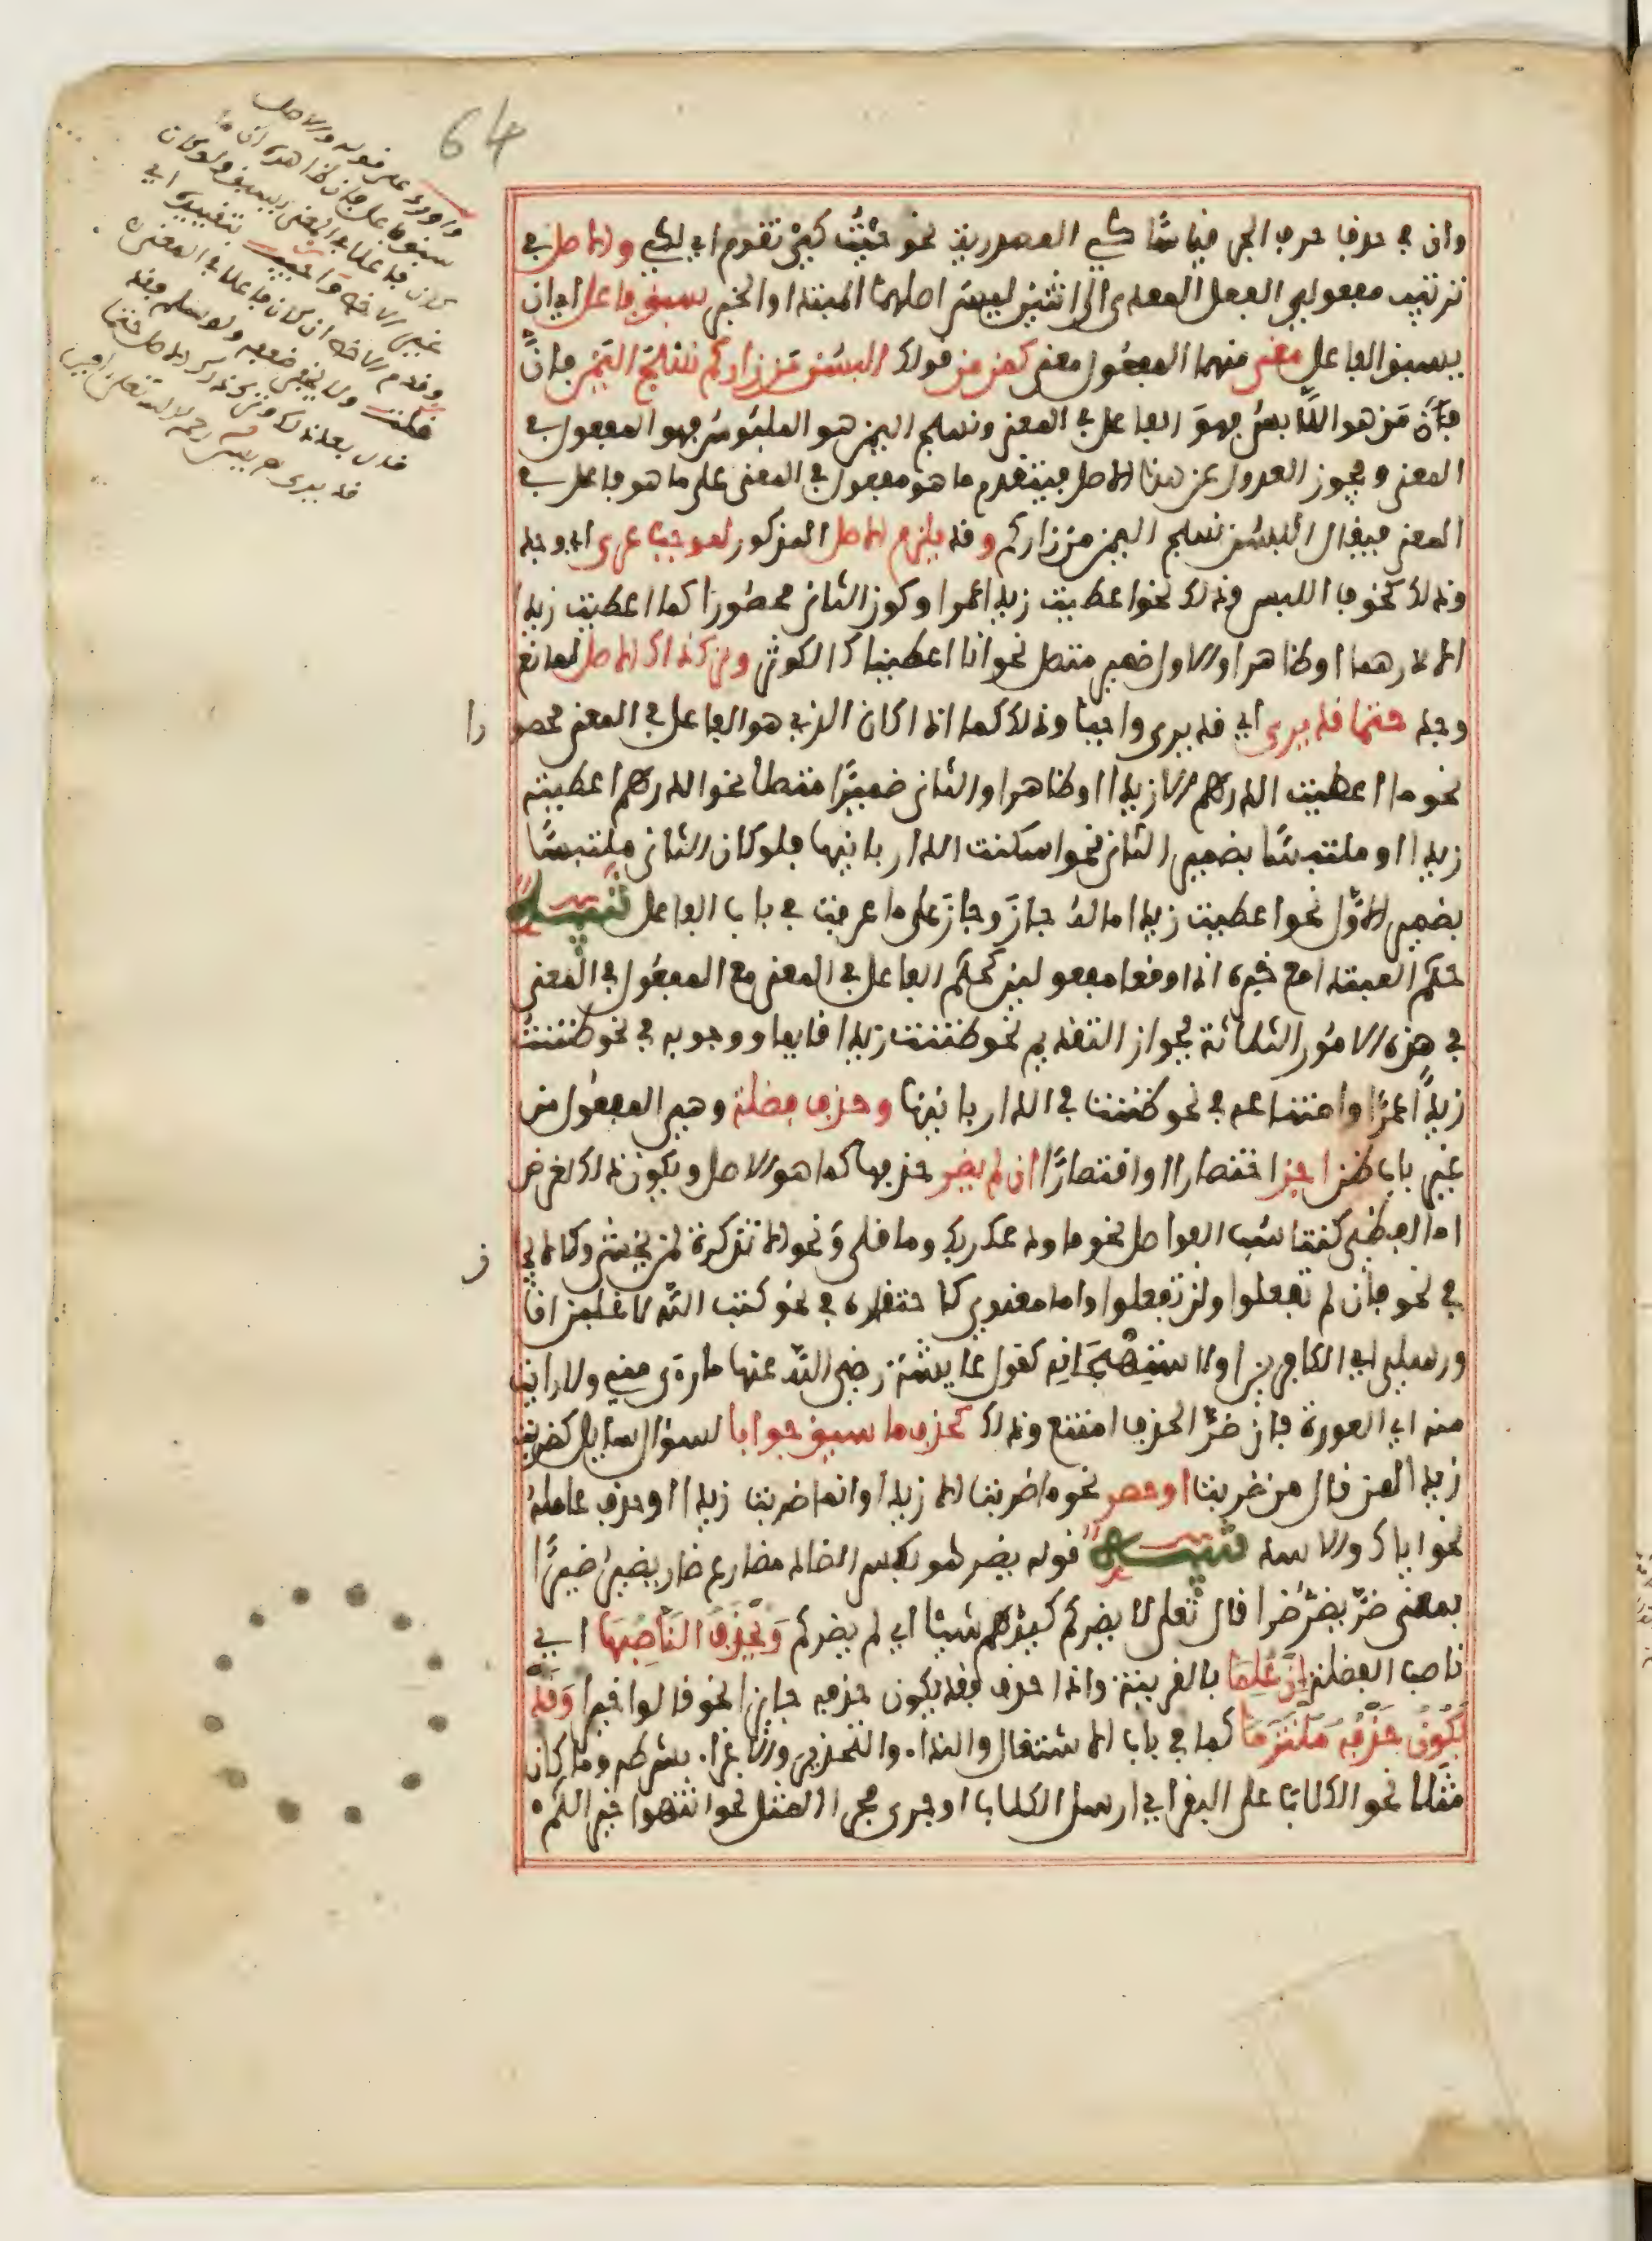 64
وان في حذف حرف الجر قياسا كي المصدرية نحو جئت كي تقوم اي لكي والاصل في
ترتيب مفعولي الفعل المعدى الى اثنين ليس اصلهما المبتدا والخبر سبق فاعل اي ان
يسبق الفاعل معنى منهما المفعول معنى كمن من قولك البسن من زاركم نسج اليمن فان
فان من هو اللابس فهو الفاعل في المعنى ونسج اليمن هو الملبوس فهو المفعول في
المعنى ويجوز العدول عن هذا الاصل فيتقدم ما هو مفعول في المعنى على ما هو فاعل في
المعنى فيقال البسن نسج اليمن من زاركم وقد يلزم الاصل المذكور لموجب عرى اي وجد
وذلك كخوف اللبس وذلك نحو اعطيت زيدا عمرا وكون الثاني محصورا كما اعطيت زيدا
الا درهما او ظاهرا والاول ضمير متصل نحو انا اعطيناك الكوثر وترك ذاك الاصل لمانع
وجد حتما قد يرى اي قد يرى واجبا وذلك كما اذا كان الذي هو الفاعل في المعنى محصورا
نحو ما اعطيت الدرهم الا زيدا او ظاهرا والثاني ضميرا متصلا نحو الدرهم اعطيته
زيدا او ملتبسا بضمير الثاني نحو اسكنت الدار بانيها فلو كان الثاني ملتبسا
بضمير الاول نحو اعطيت زيدا ماله جاز وجاز على ما عرفت في باب الفاعل تنبيه
حكم المبتدا مع خبره اذا وقعا مفعولين كحكم الفاعل في المعنى مع المفعول في المعنى
في هذه الامور الثلاثة فجواز التقديم نحو ظننت زيدا قايما ووجوبه في نحو ظننت
زيدا عمرا وامتناعه في نحو ظننت في الدار بانيها وحذف فضلة وهي المفعول من
غير باب ظن اجز اختصارا او اقتصارا ان لم يضر حذفها كما هو الاصل ويكون ذلك لغرض
اما لفظي كتناسب الفواصل نحو ما ودعك ربك وما قلى ونحو الا تذكرة لمن يخشى وكالايجاز
في نحو فان لم تفعلوا ولن تفعلوا واما معنوي كاحتقاره في نحو كتب الله لاغلبن انا
ورسلي اي الكافرين او لاستهجانه كقول عايشة رضي الله عنها ما رءى مني ولا رايت
منه اي العورة فان ضر الحذف امتنع وذلك كحذف ما سيق جوابا لسؤال سايل كضربت
زيدا لمن قال من ضربت او حصر نحو ما ضربت الا زيدا او انما ضربت زيدا او حذف عامله
نحو اياك والاسد تنبيه قوله يضر هو بكسر الضاد مضارع ضار يضير ضيرا
بمعنى ضر يضر ضرا قال تعلى لا يضركم كيدهم شيئا اي لم يضركم ويحذف الناصبها اي
ناصب الفضلة ان علما بالقرينة واذا حذف فقد يكون حذفه جايزا نحو قالوا خيرا وقد
يكون حذفه ملتزما كما في باب الاشتغال والندا والتحذير والاغرا بشرطه وما كان
مثلا نحو الكلاب على البقر اي ارسل الكلاب او جرى مجرى المثل نحو انتهوا خيرا لكم